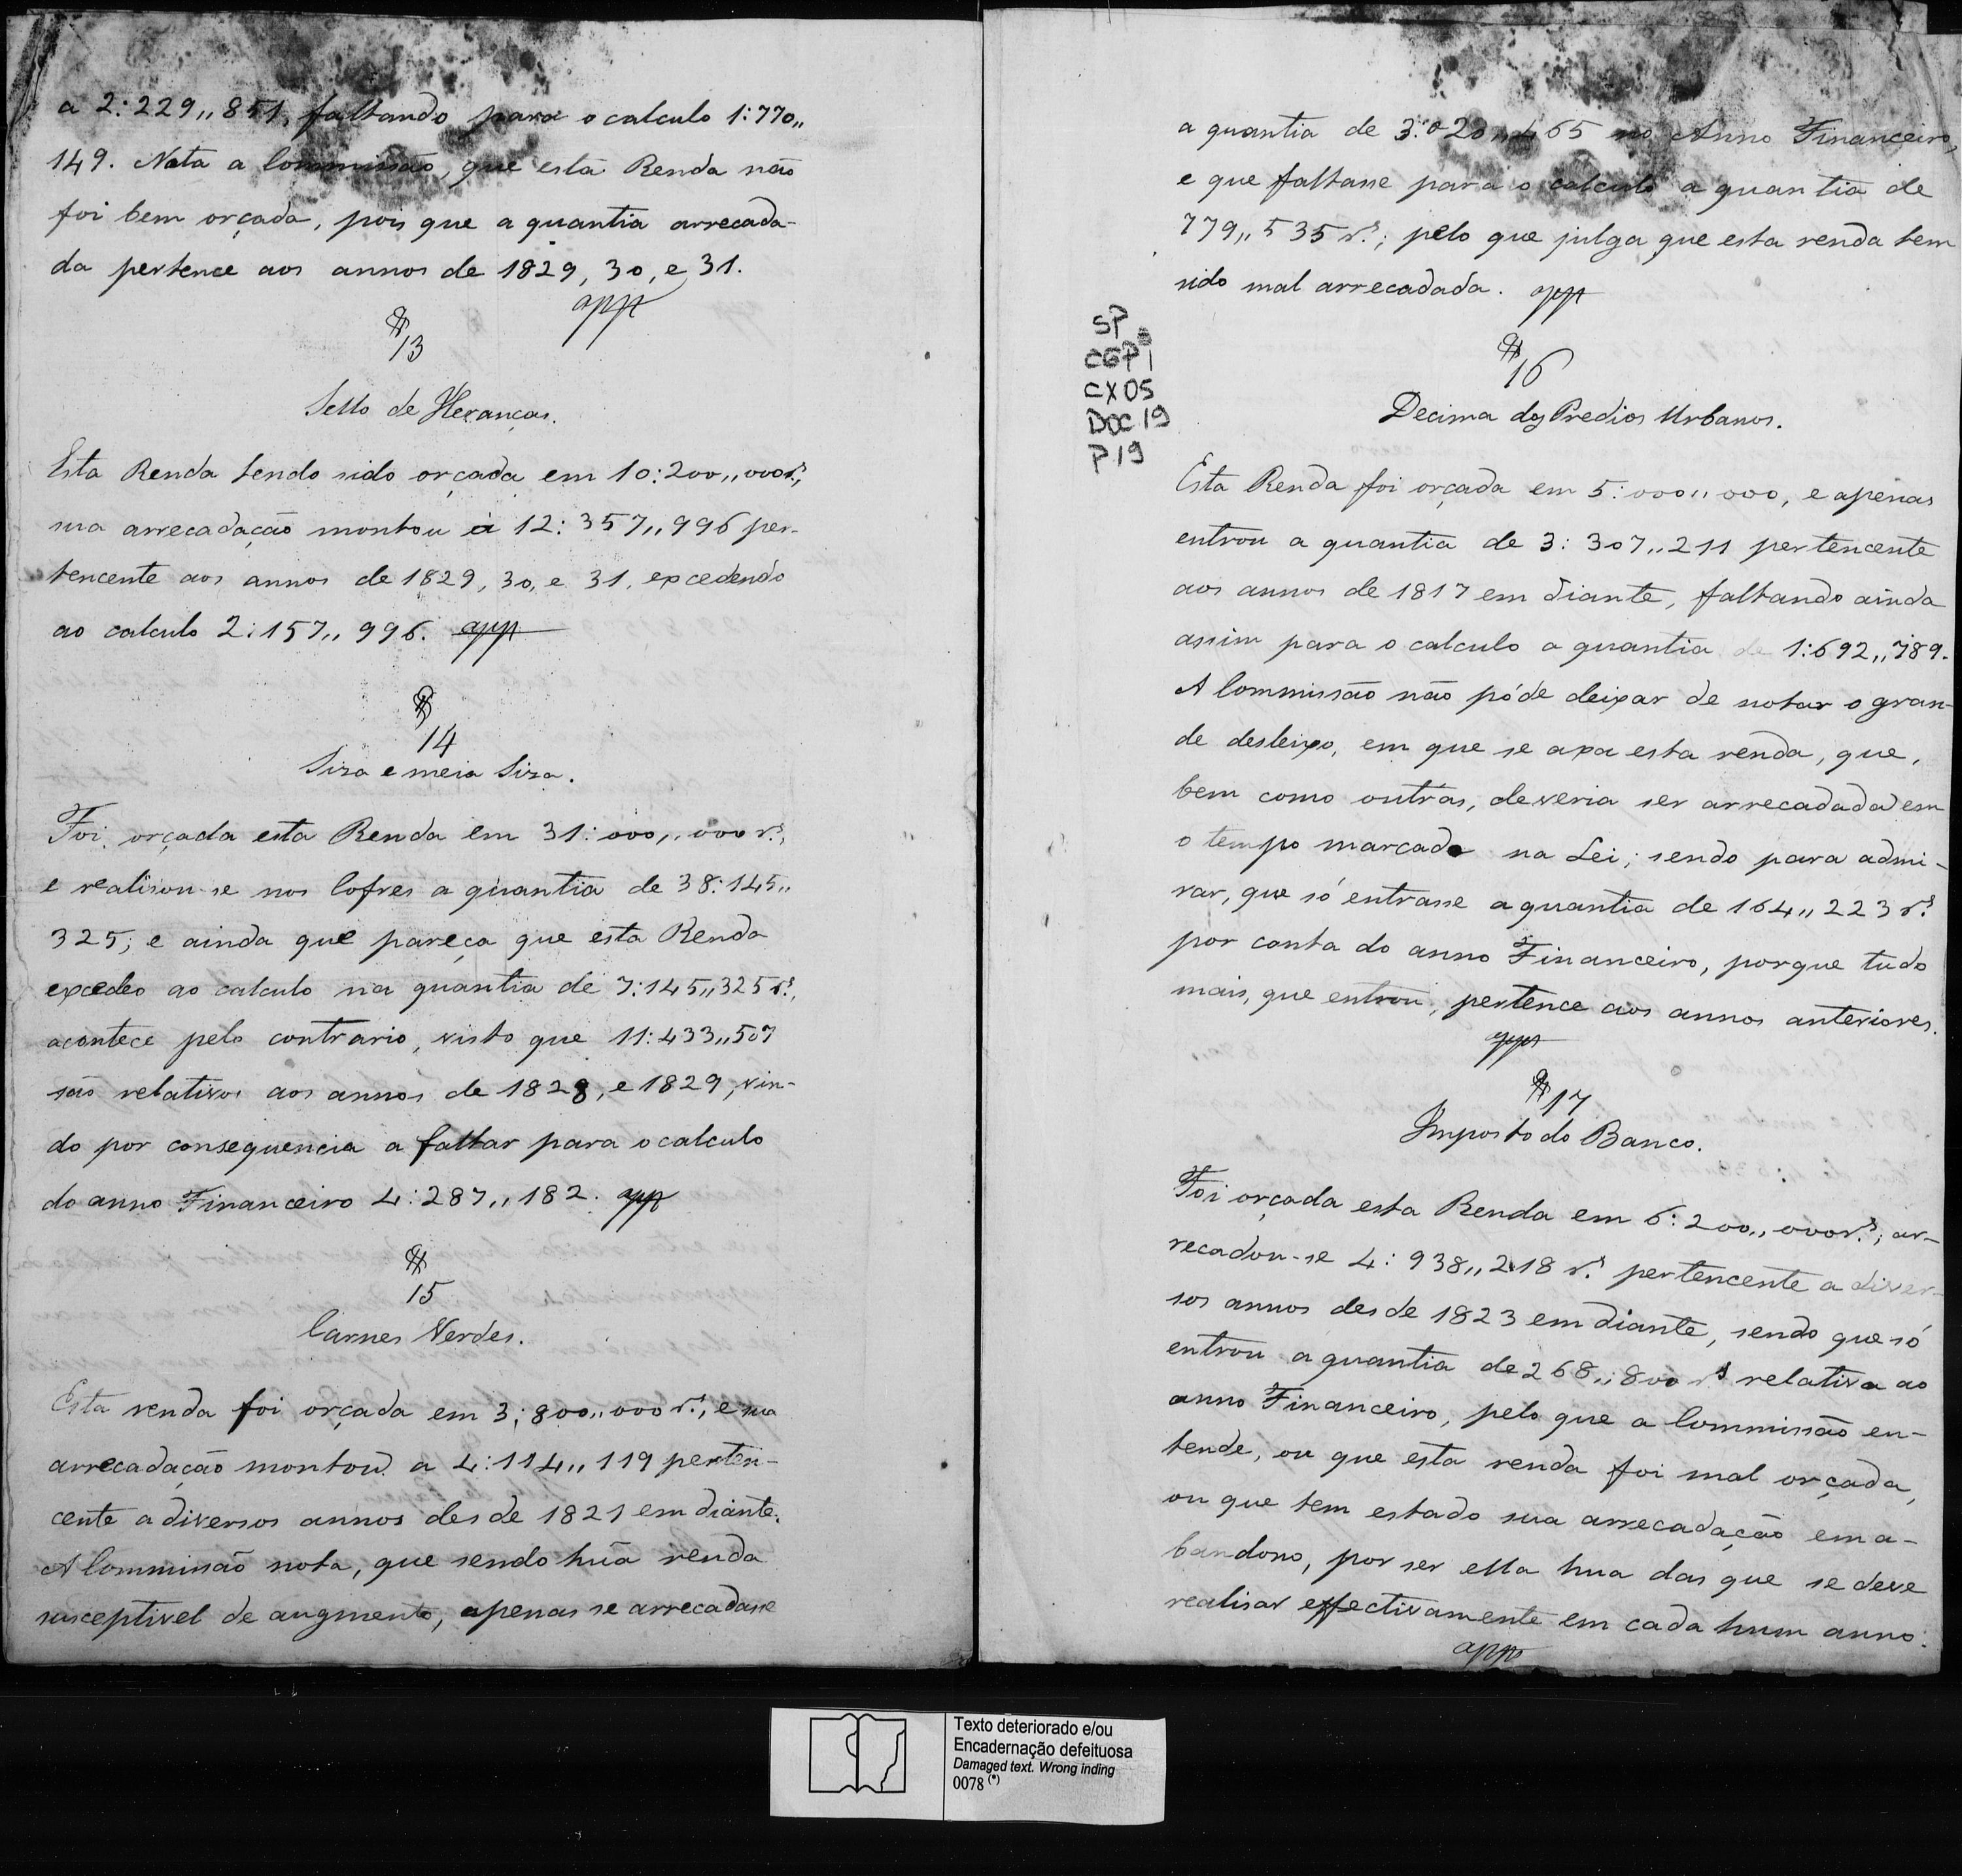 a 2:229,,851, faltando para o calculo 1:770,,
149. Nota a Commissão, que esta Renda não
foi bem orçada, pois que a quantia arrecada-
da pertence aos annos de 1829, 30, e 31.
app
§
13
Sello de Heranças.
Esta Renda tendo sido orçada em 10:200,,000 r.s,
sua arrecadação montou á 12:357,,996 per-
tencente aos annos de 1829, 30, e 31, excedendo
ao calculo 2:157,,996. app
§
14
Siza e meia Siza.
Foi orçada esta Renda em 31:000,,000 r.s,
e realisou-se nos Cofres a quantia de 38:145,,
325; e ainda que pareça que esta Renda
excedeo ao calculo na quantia de 7:145,,325 r.s,
acontece pelo contrario, visto que 11:433,,507
são relativos aos annos de 1828, e 1829, vin-
do por consequencia a faltar para o calculo
do anno Financeiro 4:287,,182. app
§
15
Carnes Verdes.
Esta renda foi orçada em 3:800,,000 r.s, e sua
arrecadação montou a 4:114,,119 perten-
cente a diversos annos desde 1821 em diante.
A Commissão nota, que sendo hũa renda
susceptivel de augmento, apenas se arrecadasse
a quantia de 3:020,,465 no Anno Financeiro,
e que faltasse para o calculo a quantia de
779,,535 r.s; pelo que julga que esta renda tem
sido mal arrecadada. app
SP
CGP1
CX05
DOC19
P19
§
16
Decima dos Predios Urbanos.
Esta Renda foi orçada em 5:000,,000, e apenas
entrou a quantia de 3:307,,211 pertencente
aos annos de 1817 em diante, faltando ainda
assim para o calculo a quantia de 1:692,,789.
A Commissão não póde deixar de notar o gran-
de desleixo, em que se axa esta renda, que,
bem como outras, deveria ser arrecadada em
o tempo marcado na Lei; sendo para admi-
rar, que só entrasse a quantia de 164,,223 r.s
por conta do anno Financeiro, porque tudo
mais, que entrou, pertence aos annos anteriores.
app
§ 17
Imposto do Banco.
Foi orçada esta Renda em 6:200,,000 r.s; ar-
recadou-se 4:938,,218 r.s pertencente a diver-
sos annos desde 1823 em diante, sendo que só
entrou a quantia de 268,,800 r.s relativa ao
anno Financeiro, pelo que a Commissão en-
tende, ou que esta renda foi mal orçada,
ou que tem estado sua arrecadação em a-
bandono, por ser ella hua das que se deve
realisar effectivamente em cada hum anno.
app
Texto deteriorado e/ou
Encadernação defeituosa
Damaged text. Wrong inding
0078 (*)